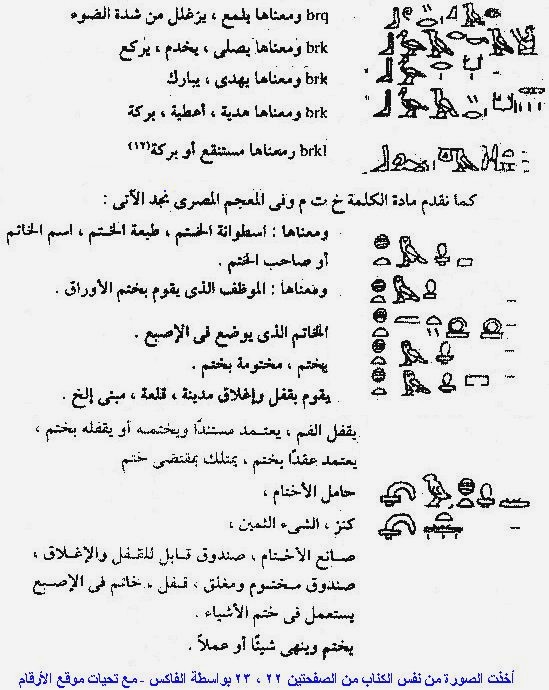 brq ومعناها يلمع ، يزغلل من شدة الضوء
brk ومعناها يصلى ، يخدم ، يركع
brk ومعناها يهدى ، يبارك
brk ومعناها هدية ، أعطية ، بركة
brkl ومعناها مستنقع أو بركة(١٢)
كما نقدم مادة الكلمة خ ت م وفى المعجم المصرى نجد الآتى :
ومعناها : اسطوانة الختم ، طبعة الختم ، اسم الخاتم
أو صاحب الختم .
ومعناها : الموظف الذى يقوم بختم الأوراق .
الخاتم الذى يوضع فى الإصبع .
يختم ، مختومة بختم .
يقوم بقفل وإغلاق مدينة ، قلعة ، مبنى إلخ .
يقفل الفم ، يعتمد مستندًا ويختمه أو يقفله بختم ،
يعتمد عقدًا بختم ، يمتلك بمقتضى ختم
حامل الأختام ،
كنز ، الشىء الثمين ،
صانع الأختام ، صندوق قابل للقفل والإغلاق ،
صندوق مختوم ومغلق ، قفل ، خاتم فى الإصبع
يستعمل فى ختم الأشياء .
يختم وينهى شيئًا أو عملاً .
أخذت الصورة من نفس الكتاب من الصفحتين ٢٢ ، ٢٣ بواسطة الفاكس - مع تحيات موقع الأرقام